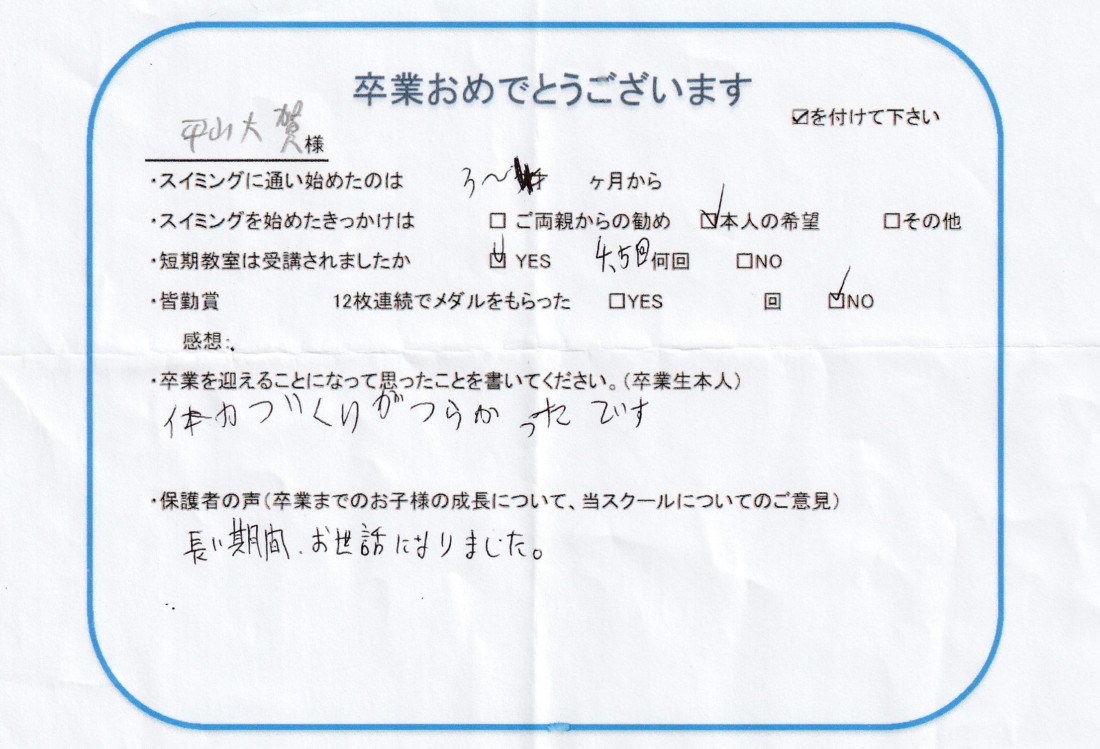 卒業おめでとうございます
☑を付けて下さい
平山大賀様
・スイミングに通い始めたのは 3〜 才 ヶ月から
・スイミングを始めたきっかけは □ ご両親からの勧め ☑本人の希望 □その他
・短期教室は受講されましたか ☑ YES 4,5回何回 □NO
・皆勤賞 12枚連続でメダルをもらった □YES 回 ☑NO
感想:
・卒業を迎えることになって思ったことを書いてください。(卒業生本人)
体力づくりがつらかったです
・保護者の声(卒業までのお子様の成長について、当スクールについてのご意見)
長い期間、お世話になりました。